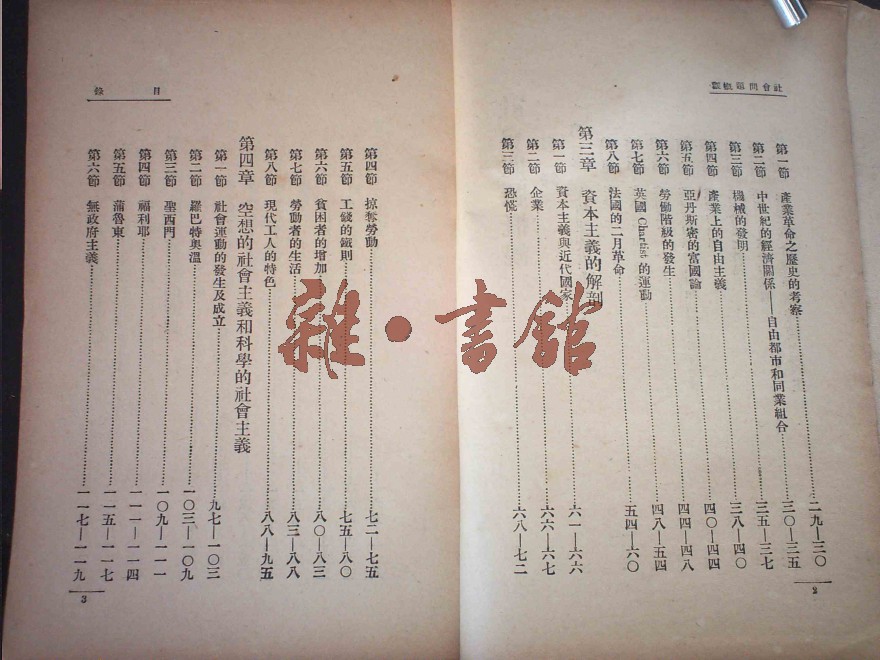 社會問題概觀
第一節 產業革命之歷史的考察 二九—三〇
第二節 中世紀的經濟關係——自由都市和同業組合 三〇—三五
第三節 機械的發明 三五—三七
第四節 產業上的自由主義 三八—四〇
第五節 亞丹斯密的富國論 四〇—四四
第六節 勞働階級的發生 四四—四八
第七節 英國 Chartist 的運動 四八—五四
第八節 法國的二月革命 五四—六〇
第三章 資本主義的解剖
第一節 資本主義與近代國家 六一—六六
第二節 企業 六六—六七
第三節 恐慌 六八—七二
2
目錄
第四節 掠奪勞動 七二—七五
第五節 工錢的鐵則 七五—八〇
第六節 貧困者的增加 八〇—八三
第七節 勞動者的生活 八三—八八
第八節 現代工人的特色 八八—九五
第四章 空想的社會主義和科學的社會主義
第一節 社會運動的發生及成立 九七—一〇三
第二節 羅巴特奧溫 一〇三—一〇九
第三節 聖西門 一〇九—一一一
第四節 福利耶 一一一—一一四
第五節 蒲魯東 一一五—一一七
第六節 無政府主義 一一七—一一九
3
雜·書館